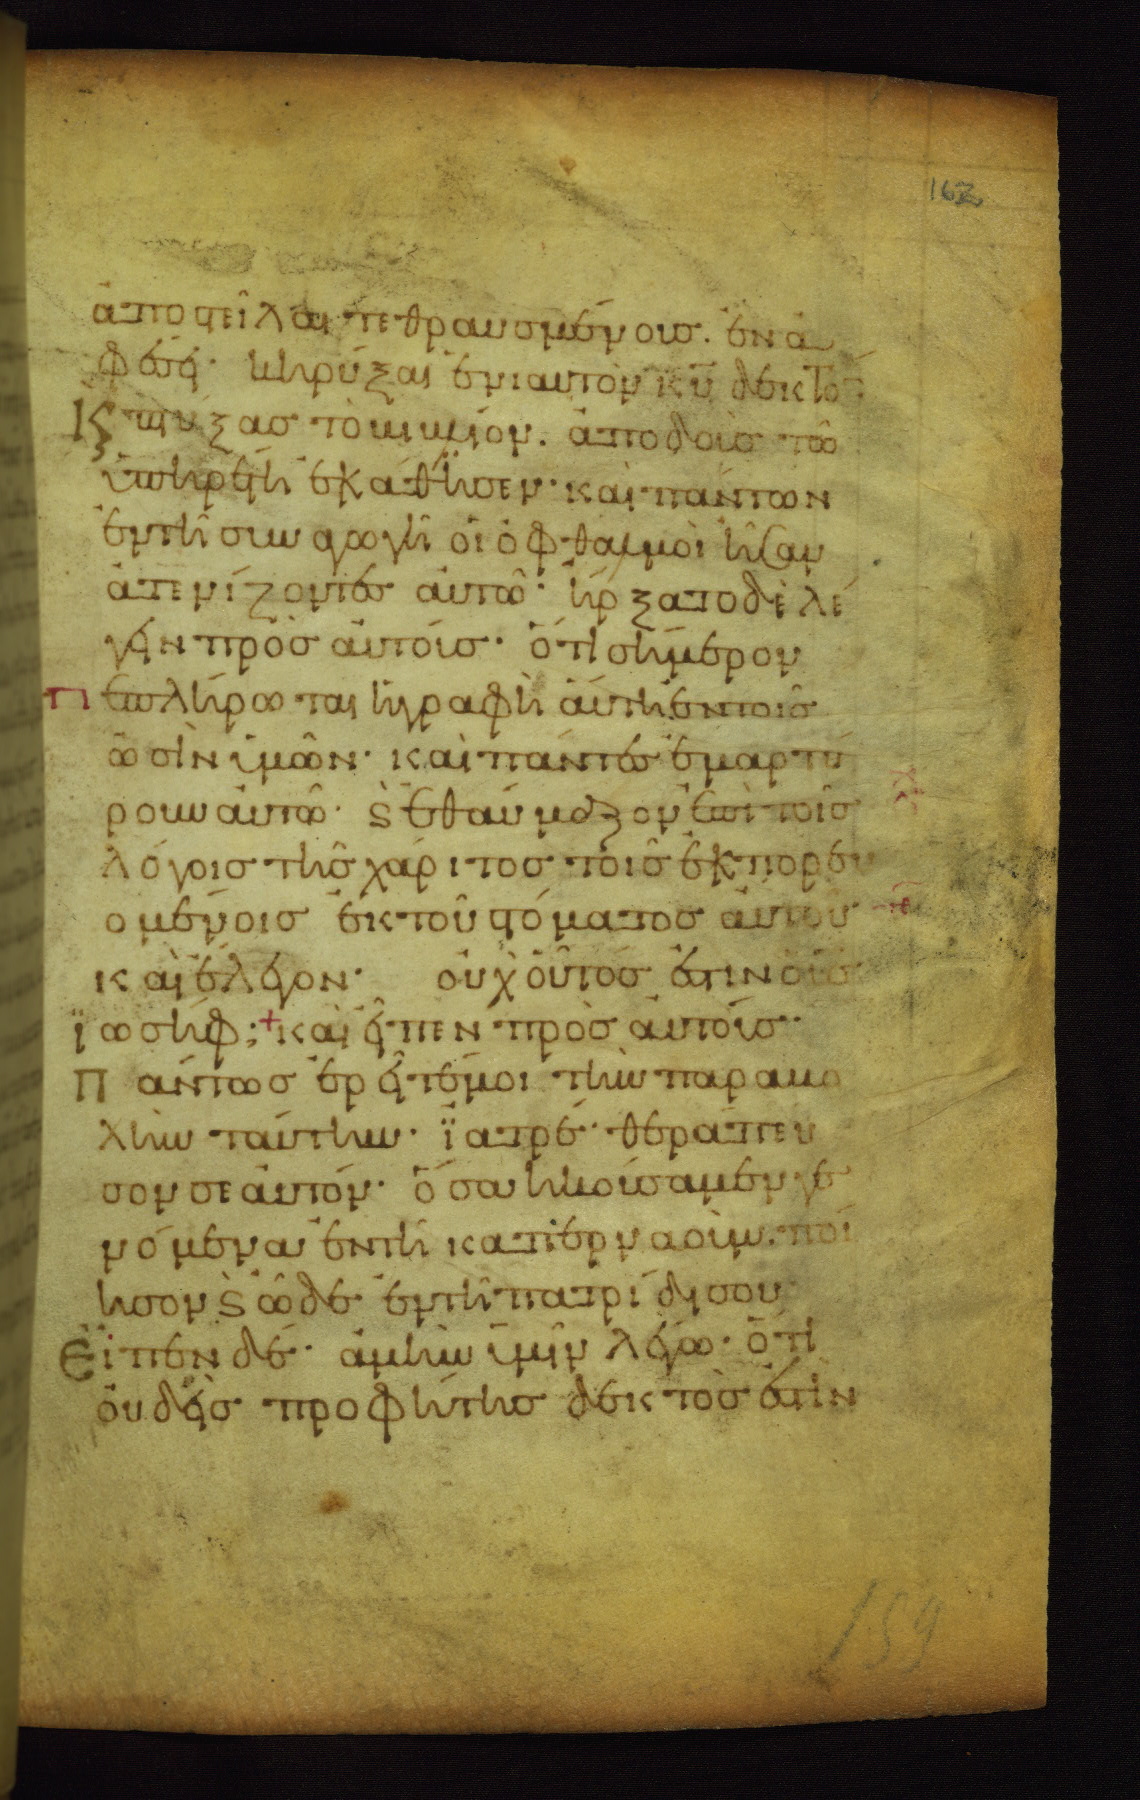 162
ἀποστεῖλαι τεθραυσμένους. ἐν ἀ
φέσει· κηρύξαι ἐνιαυτὸν κ̅υ̅ δεκτό
Κς πτύξας τὸ βιβλίον. ἀποδοὺς τῶ
ὑπηρέτη ἐκάθησεν· καὶ πάντων
ἐν τῆ συναγωγῆ οἱ ὀφθαλμοὶ ἦσαν
ἀτενίζοντες αὐτῶ· ἤρξατο δὲ λέ
γειν πρὸς αὐτούς· ὅτι σήμερον
πεπλήρωται ἡ γραφὴ αὕτη ἐν τοῖς
ὠσὶν ὑμῶν· καὶ πάντες ἐμαρτύ
ρουν αὐτῶ· ϛ ἐθαύμαζον ἐπὶ τοῖς
λόγοις τῆς χάριτος τοῖς ἐκπορευ
ομένοις ἐκ τοῦ στόματος αὐτοῦ
καὶ ἔλεγον· οὐχ οὗτός ἐστιν ὁ υἱὸς
ϊωσήφ; + καὶ εἶπεν πρὸς αὐτούς·
Πάντως ἐρεῖτέ μοι τὴν παραβο
λὴν ταύτην· ϊατρέ· θεράπευ
σον σεαυτόν· ὅσα ἠκούσαμεν γε
νόμενα ἐν τῆ καπερναούμ. ποί
ησον ϛ ὧδε ἐν τῆ πατρίδι σου
Εἶπεν δέ· ἀμὴν ὑμῖν λέγω· ὅτι
οὐδεὶς προφήτης δεκτὸς ἐστὶν
159